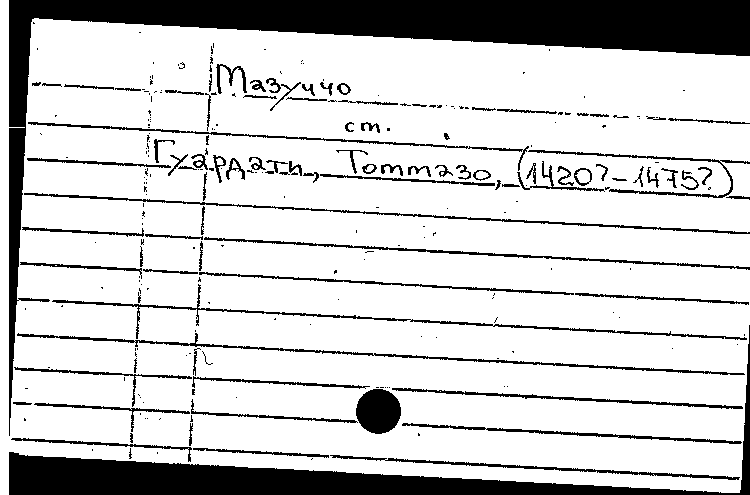 Мазуччо
ст.
Гуардати, Томmазо, (1420?-1475?)